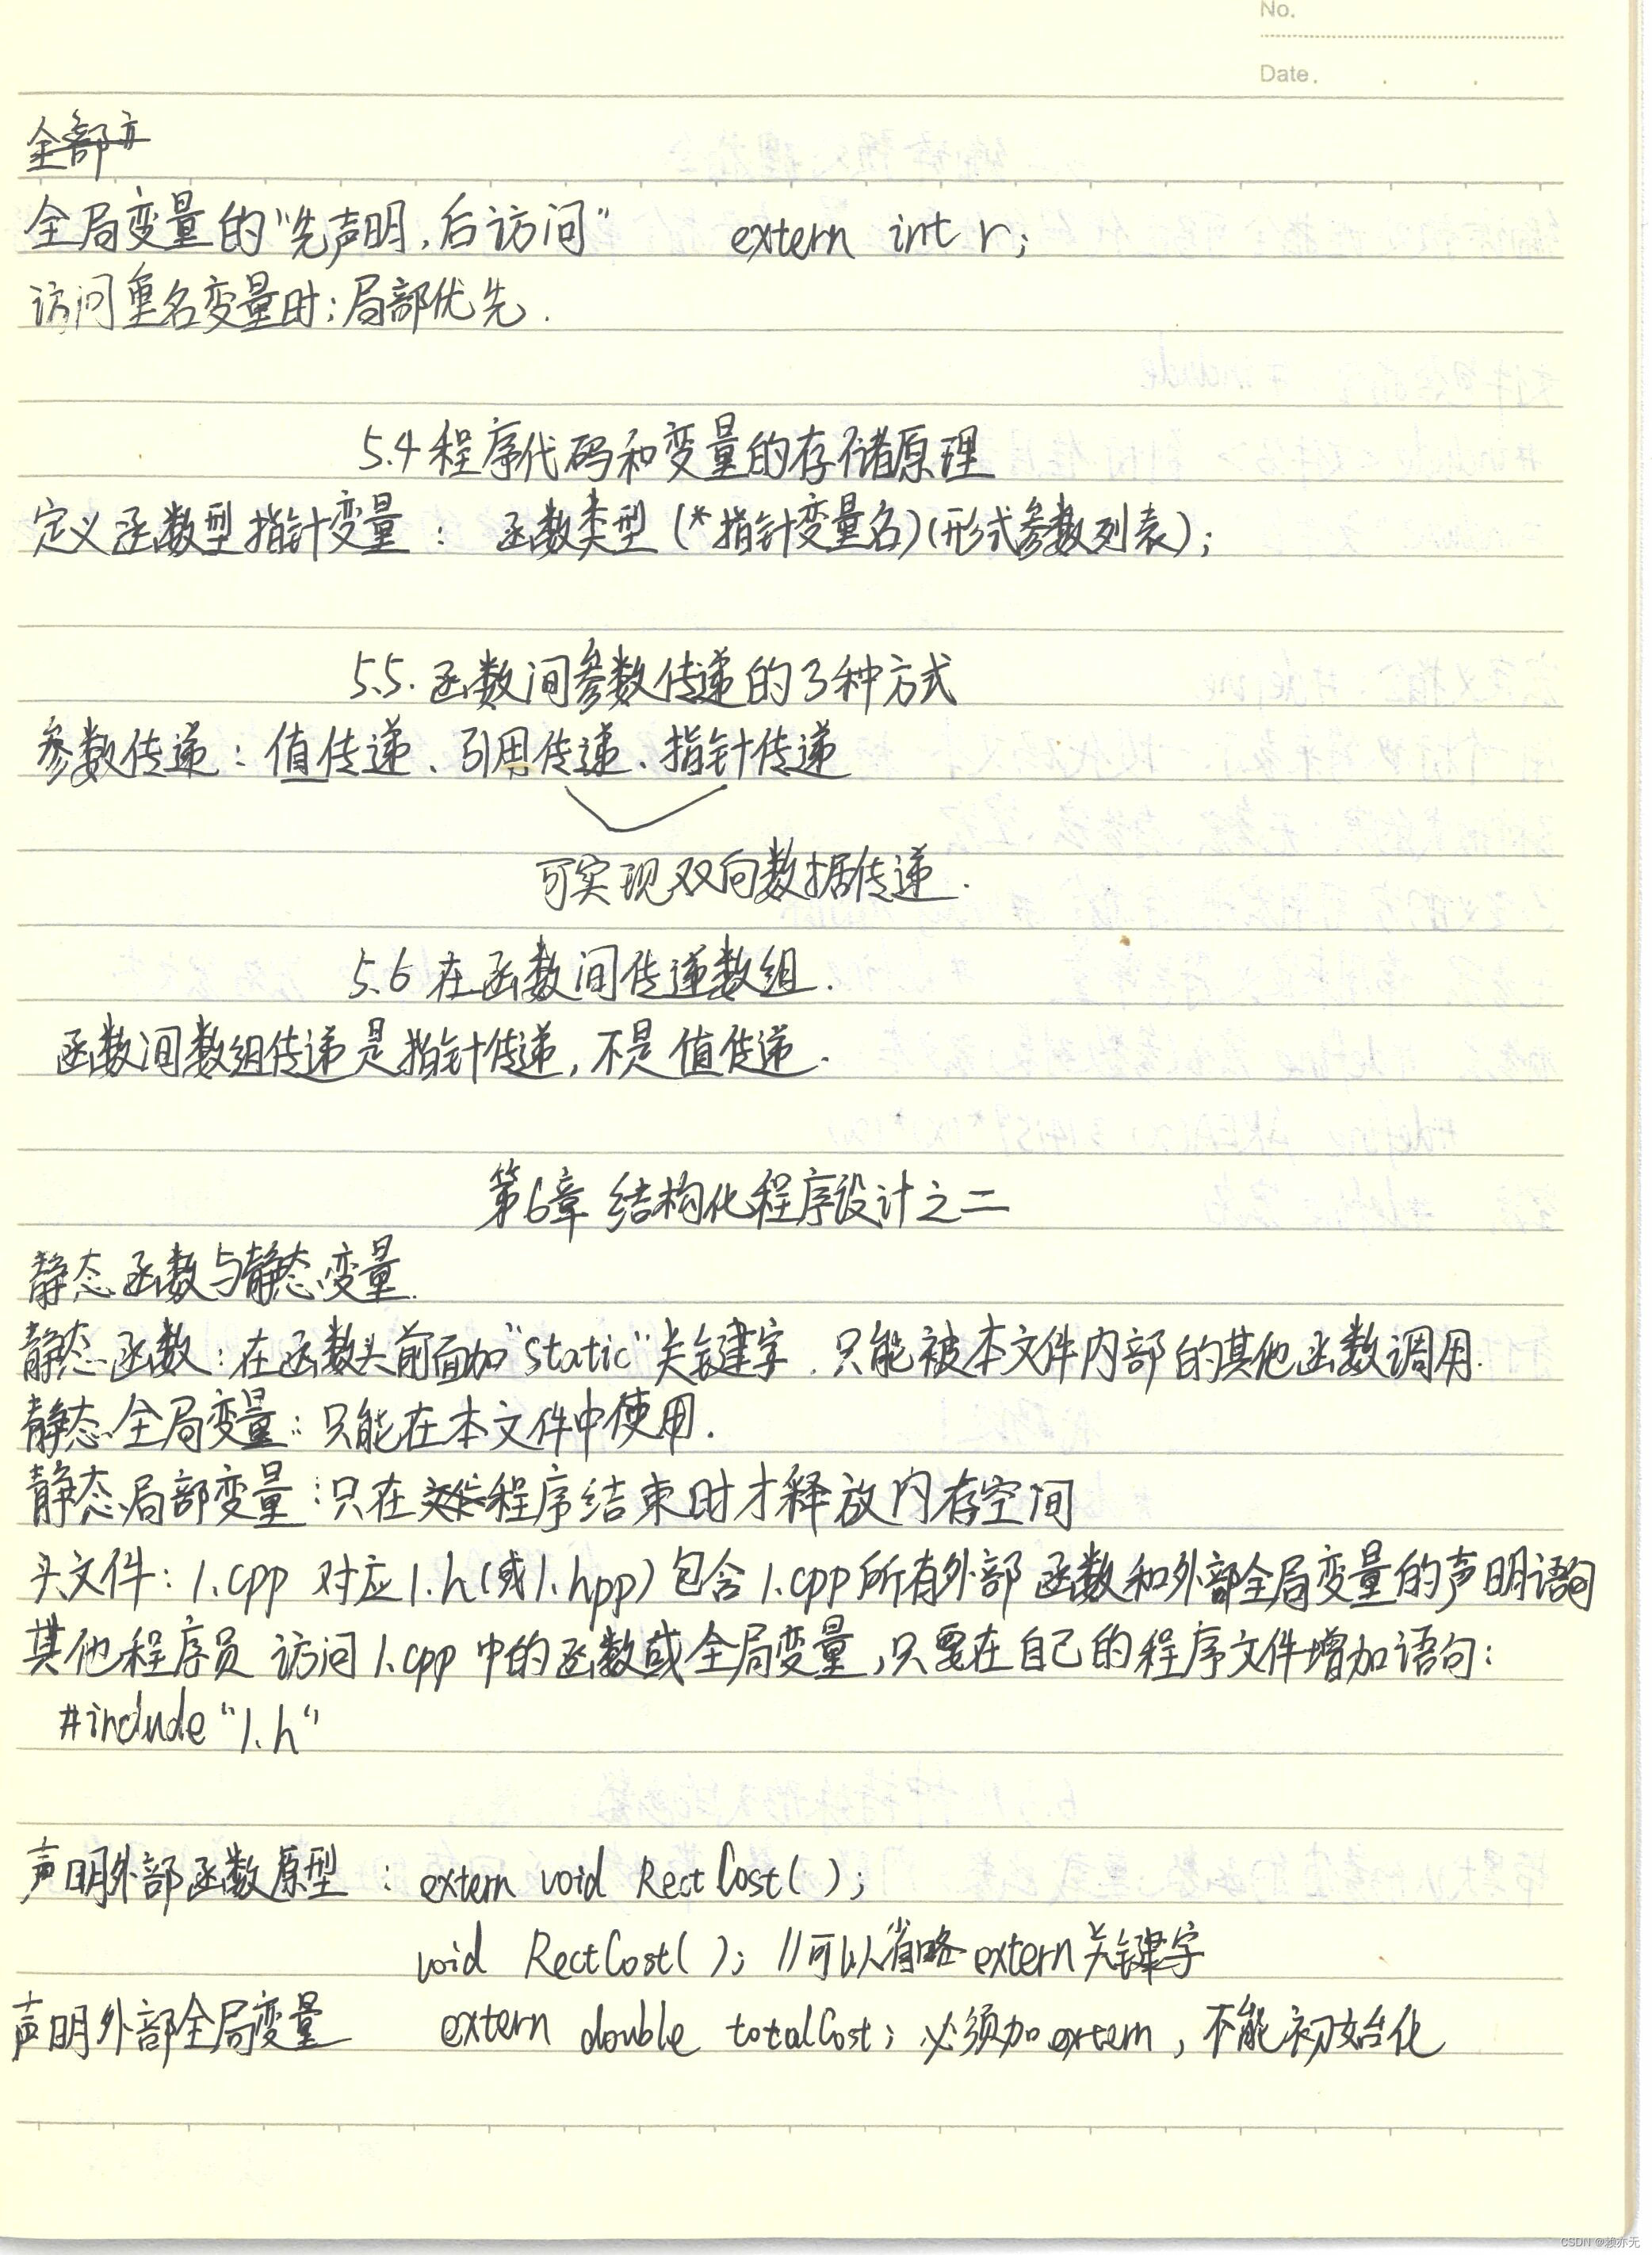 No.
Date.
全部亦
全局变量的"先声明,后访问" extern int r;
访问重名变量时:局部优先.
5.4 程序代码和变量的存储原理
定义函数型指针变量: 函数类型(*指针变量名)(形式参数列表);
5.5. 函数间参数传递的3种方式
参数传递:值传递、引用传递、指针传递
可实现双向数据传递.
5.6 在函数间传递数组.
函数间数组传递是指针传递,不是值传递.
第6章 结构化程序设计之二
静态函数与静态变量.
静态函数:在函数头前面加"static"关键字.只能被本文件内部的其他函数调用.
静态全局变量:只能在本文件中使用.
静态局部变量:只在文件程序结束时才释放内存空间
头文件:1.cpp 对应1.h(或1.hpp)包含1.cpp所有外部函数和外部全局变量的声明语句
其他程序员 访问1.cpp中的函数或全局变量,只要在自己的程序文件增加语句:
#include "1.h"
声明外部函数原型: extern void RectCost( );
void RectCost( ); //可以省略extern关键字
声明外部全局变量 extern double totalCost; 必须加extern,不能初始化
CSDN @赖亦无